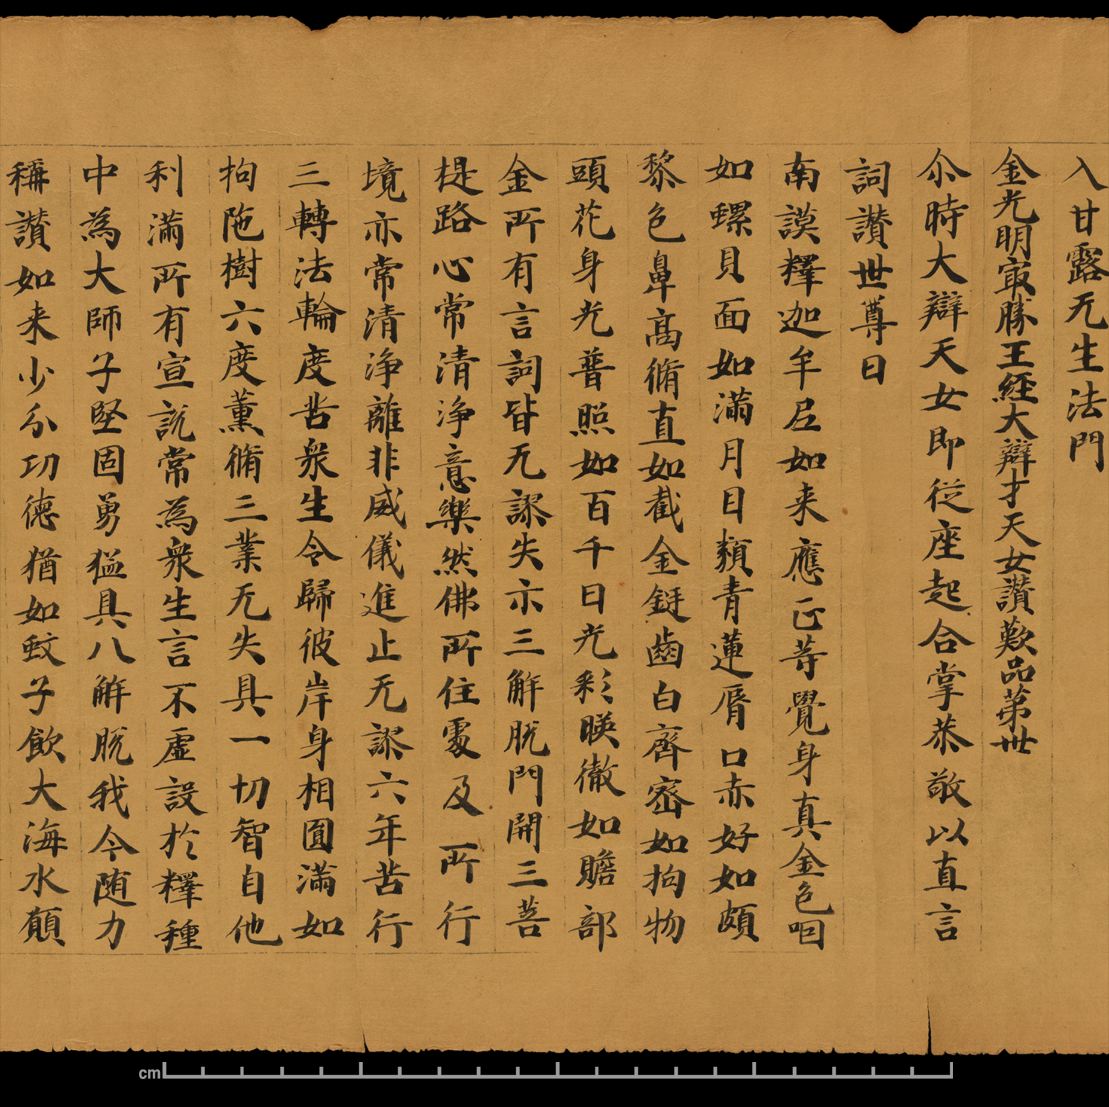 入甘露无生法門
金光明冣勝王經大辯才天女讚歎品第卅
尒時大辯天女即從座起合掌恭敬以直言
詞讚世尊曰
南謨釋迦牟尼如来應正等覺身真金色咽
如螺貝面如滿月目類青蓮脣口赤好如頗
黎色鼻高脩直如截金鋌齒白齊密如拘物
頭花身光普照如百千日光彩暎徹如贍部
金所有言詞皆无謬失示三解脫門開三菩
提路心常清淨意樂然佛所住處及所行
境亦常清淨離非威儀進止无謬六年苦行
三轉法輪度苦衆生令歸彼岸身相圓滿如
拘陁樹六度薰脩三業无失具一切智自他
利滿所有宣說常為衆生言不虛設於釋種
中為大師子堅固勇猛具八解脫我今随力
稱讃如来少分功德猶如蚊子飲大海水願
cm